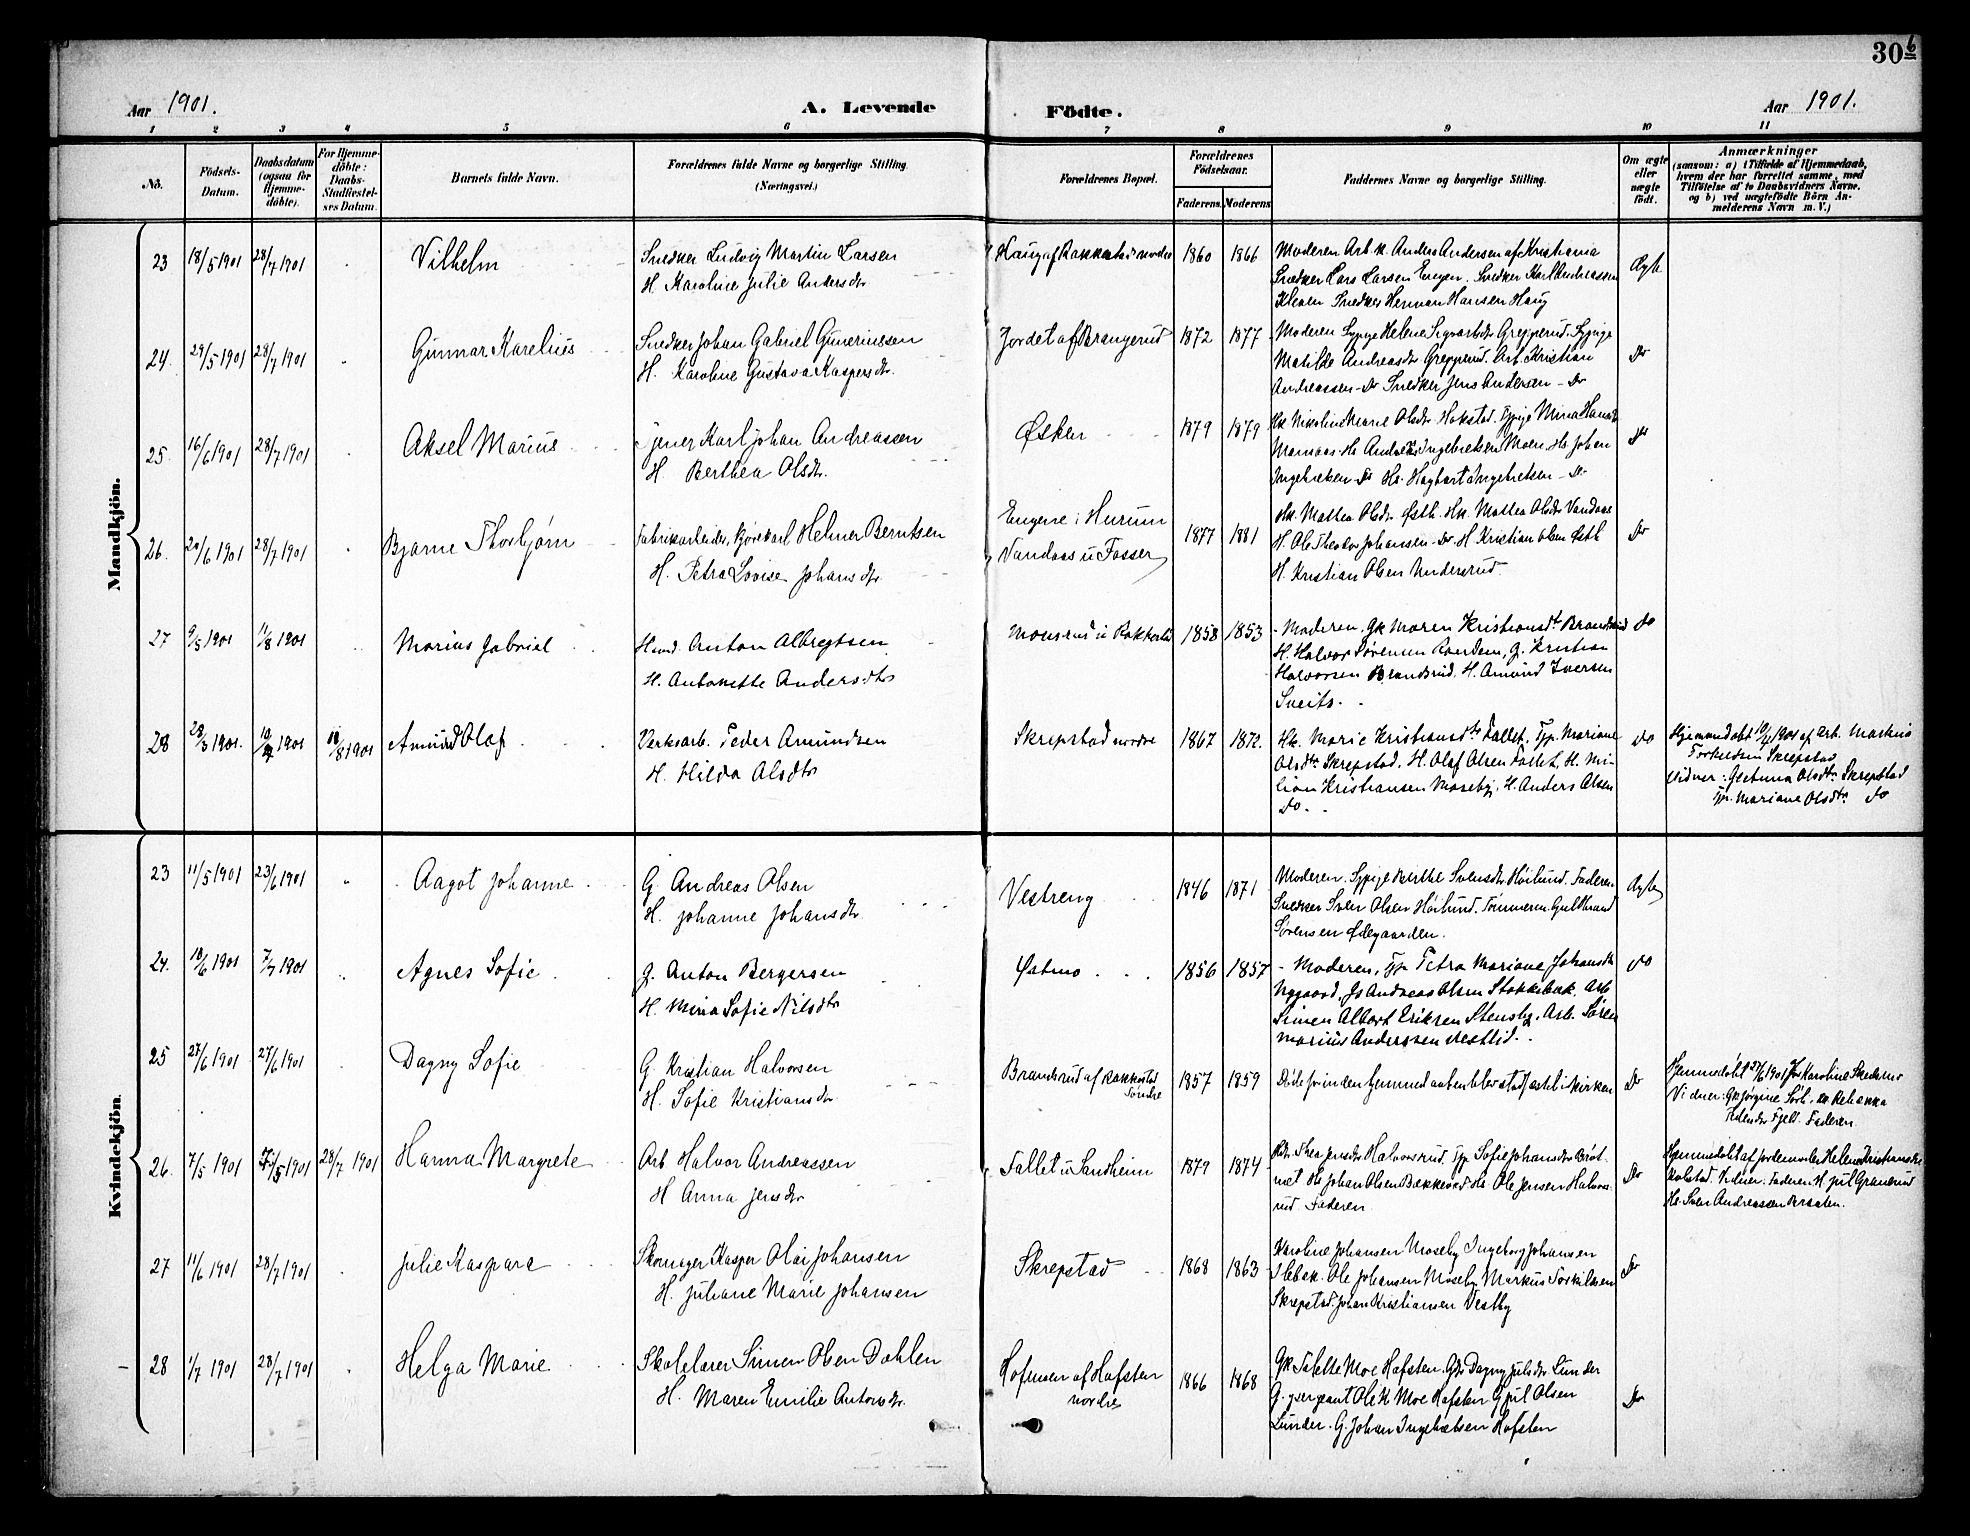 30 b
Aar 1901.
A. Levende
Födte.
Aar 1901.
1 2 3 4 5 6 7 8 9 10 11
No.
Födsels-Datum.
Daabsdatum (ogsaa for Hjemme-döbte).
For Hjemme-döbte: Daabs-Stadfæstel-ses Datum.
Barnets fulde Navn.
Forældrenes fulde Navne og borgerlige Stilling. (Næringsvei.)
Forældrenes Bopæl.
Forældrenes Födselsaar.
Faderens.
Moderens.
Faddernes Navne og borgerlige Stilling.
Om ægte eller uægte födt.
Anmærkninger
(saasom: a) i Tilfælde af Hjemmedaab,
hvem der har forrettet samme, med
Tilföielse af to Daabsvidners Navne.
og b) ved uægtefödte Börn An-
melderens Navn m. V.)
Mandkjön.
23 18/5 1901 28/7 1901 Vilhelm
Snedker Ludvig Martin Larsen
H. Karoline Julie Andersdtr
Haug af Rakkestad nordre 1860 1866
Moderen Arb. K. Anders Andersen af Kristiania
Snedker Lars Larsen Engen. Snedker Karl Andreassen
Snedker Herman Hansen Haug
Ægte
24. 29/5 1901 28/7 1901 Gunnar Karelius
Snedker Johan Gabriel Gunerinssen
H. Karoline Gustava Kaspersdtr.
Jordet af Brangerud 1872 1877
Moderen Sypige Helene Sigvartsdtr Grepperud. Sypige
Matilde Andreasdtr Grepperud. Arb. Kristian
Andreassen - Do Snedker Jens Andersen - Do
Do
25. 16/6 1901 28/7 1901 Aksel Marius
Tjener Karl Johan Andreassen
H. Berthea Olsdtr.
Østen 1879 1879
Hk. Nikoline Marie Olsdtr Hokstad. Tjpige Mina Hansdtr
Ingebretsen Moen. Hs Johan
Ingebretsen - Do Hs. Hagbart Ingebretsen - Do
Do
26. 20/6 1901 28/7 1901 Bjarne Thorbjørn
Fabrikarbeider, Kjørekarl Helmer Berntsen
H. Petra Lovise Johansdtr
Engene i Hurum
Vandaas u Fosser 1877 1881
Hk. Mathea Olsdr Østb. Hk. Mathea Olsdr Vandaas
H. Ole Theodor Johansen - Do. H Kristian Olsen Østb
H. Kristian Olsen Undersrud.
Do
27 9/5 1901 11/8 1901 Marius Gabriel
Hmd. Anton Albregtsen
H. Antonette Andersdtr
Monsrud u Rakkestad 1858 1853
- Moderen. Gk Maren Kristiansdtr Brandsrud
H. Halvor Sørensen, G. Kristian
Halvorsen Brandsrud, H. Amund Iversen
Sveits.
do
28 28/3 1901. 10/4 1901 11/8 1901 Amund Olaf
Verksarb. Peder Amundsen
H. Hilda Olsdtr
Skrepstad nordre 1867 1872.
Hk. Marie Kristiansdtr Fallet, Tjp. Mariane
Olsdtr Skrepstad, H. Olaf Olsen Fallet, H. Mi-
lion Kristiansen Moseby, H. Anders Olsen
do
do
Hjemmedøbt 10/4 1901 af Arb. Markus
Torkildsen Skrepstad
Vidner: Olsdtr Skrepstad
Tjp. Mariane Olsdtr do
Kvindekjön.
23 11/5 1901 23/6 1901 " Aagot Johanne
G. Andreas Olsen
H. Johanne Johansdtr
Vestreng 1846 1871
Moderen. Sypige Berthe Svensdtr Høilund. Faderen.
Snedker Sven Olsen Høilund. Tømmerm. Gulbrand
Sørensen Ødegaarden.
Ægte
24. 10/6 1901 7/7 1901 " Agnes Sofie
G. Anton Bergersen
H. Mina Sofie Nilsdtr
1856 1857
- Moderen, Tjp Petra Mariane Johansdtr
Nygaard, Js Andreas Olsen Stokkebæk. Arb
Simen Albert Eriksen Stensby, Arb. Søren
Marius Anderssen Vestlid.
do
25 27/6 1901 27/6 1901 Dagny Sofie
G. Kristian Halvorsen
H. Sofie Kristiansdtr
Brandsrud af Rakkestad
søndre 1857 1859
Døde førinden hjemmedaaben blev stadfæstet i kirken
Do
Hjemmedøbt 27/6 1901 af Karoline
Vidner: Gk Jørgine
Fjeld. Faderen.
26. 7/5 1901 7/5 1901 28/7 1901 Hanna Margrete
Arb Halvor Andreassen
H Anna Jensdtr
Fallet u Sandheim 1879 1874
Thea Jensdtr Halvorsrud. Tjp Sofie Johansdtr Brøt
Hs Johan Olsen Bækkevad. Hs. Ole Jensen Halvors
rud. Faderen
Do
Hjemmedøbt af jordemoder Helene Kristiansdtr
Kolstad. Vidner: Faderen. H Jul Granerud
Hs. Sven Andreassen Braaten.
27 11/6 1901 28/7 1901 Julie Kaspara
Skomager Kasper Olai Johansen
H. Juliane Marie Johansen
Skrepstad 1868 1863
Karoline Johansen Moseby Ingeborg Johansen
Ole Johansen Moseby Markus Torkildsen
Skrepstad. Johan Kristiansen Vestby
Do
28 1/7 1901 28/7 1901 Helga Marie
Skolelærer Simen Olsen Dahlen
H. Maren Emilie Antonsdtr.
Hofmoen af Hafsten
nordre 1866 1868
Gk Tabelle Moe Hafsten. Gdr Dagny Julsdtr Lunder
G. sergeant Ole K Moe Hafsten G Jul Olsen
Lunder. G. Johan Ingebretsen Hafsten
Do